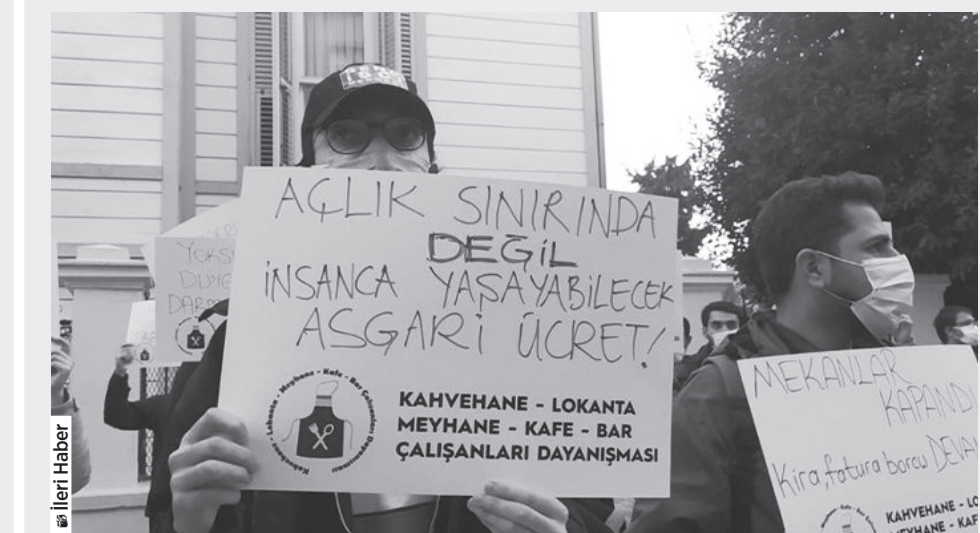 AÇLIK SINIRINDA
DEĞİL
İNSANCA YAŞAYABİLECEK
ASGARİ ÜCRET!
Kahvehane - Lokanta - Meyhane - Kafe - Bar Çalışanları Dayanışması
KAHVEHANE - LOKANTA
MEYHANE - KAFE - BAR
ÇALIŞANLARI DAYANIŞMASI
MEKANLAR
KAPAND
Kira, fatura borcu DEVA
KAHVEHANE - LO
MEYHANE - KAF
İleri Haber